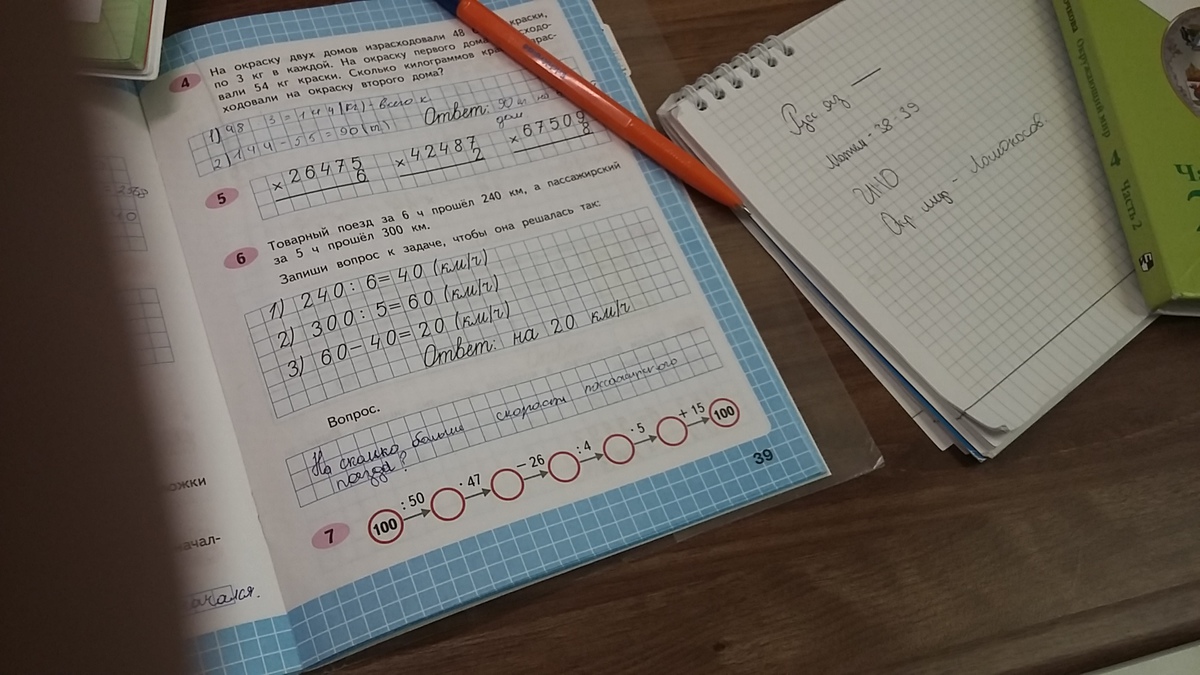 4
На окраску двух домов израсходовали 48 краски,
по 3 кг в каждой. На окраску первого дома
вали 54 кг краски. Сколько килограммов
ходовали на окраску второго дома?
1) 48 3 = 144 (кг) - всего к
2) 144 - 55 = 90 (
Ответ: 90 кг на
дом
5
× 26475
6
× 42487
2
× 67509
8
6
Товарный поезд за 6 ч прошёл 240 км, а пассажирский
за 5 ч прошёл 300 км.
Запиши вопрос к задаче, чтобы она решалась так:
1) 240 : 6 = 40 (км/ч)
2) 300 : 5 = 60 (км/ч)
3) 60 − 40 = 20 (км/ч)
Ответ: на 20 км/ч.
Вопрос.
На сколько больше скорость пассажирского
поезда?
7
100 : 50 · 47 − 26 : 4 · 5 + 15 100
39
ожки
начал-
ачался.
Русс яз —
Матем - 38 - 39
ИЗО
Окр мир - Ломоносов
Окружающий мир 4 Часть 2